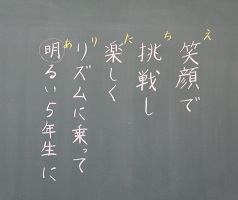 笑顔で
挑戦し
楽しく
リズムに乗って
明るい5年生に
え
ち
に
り
あ